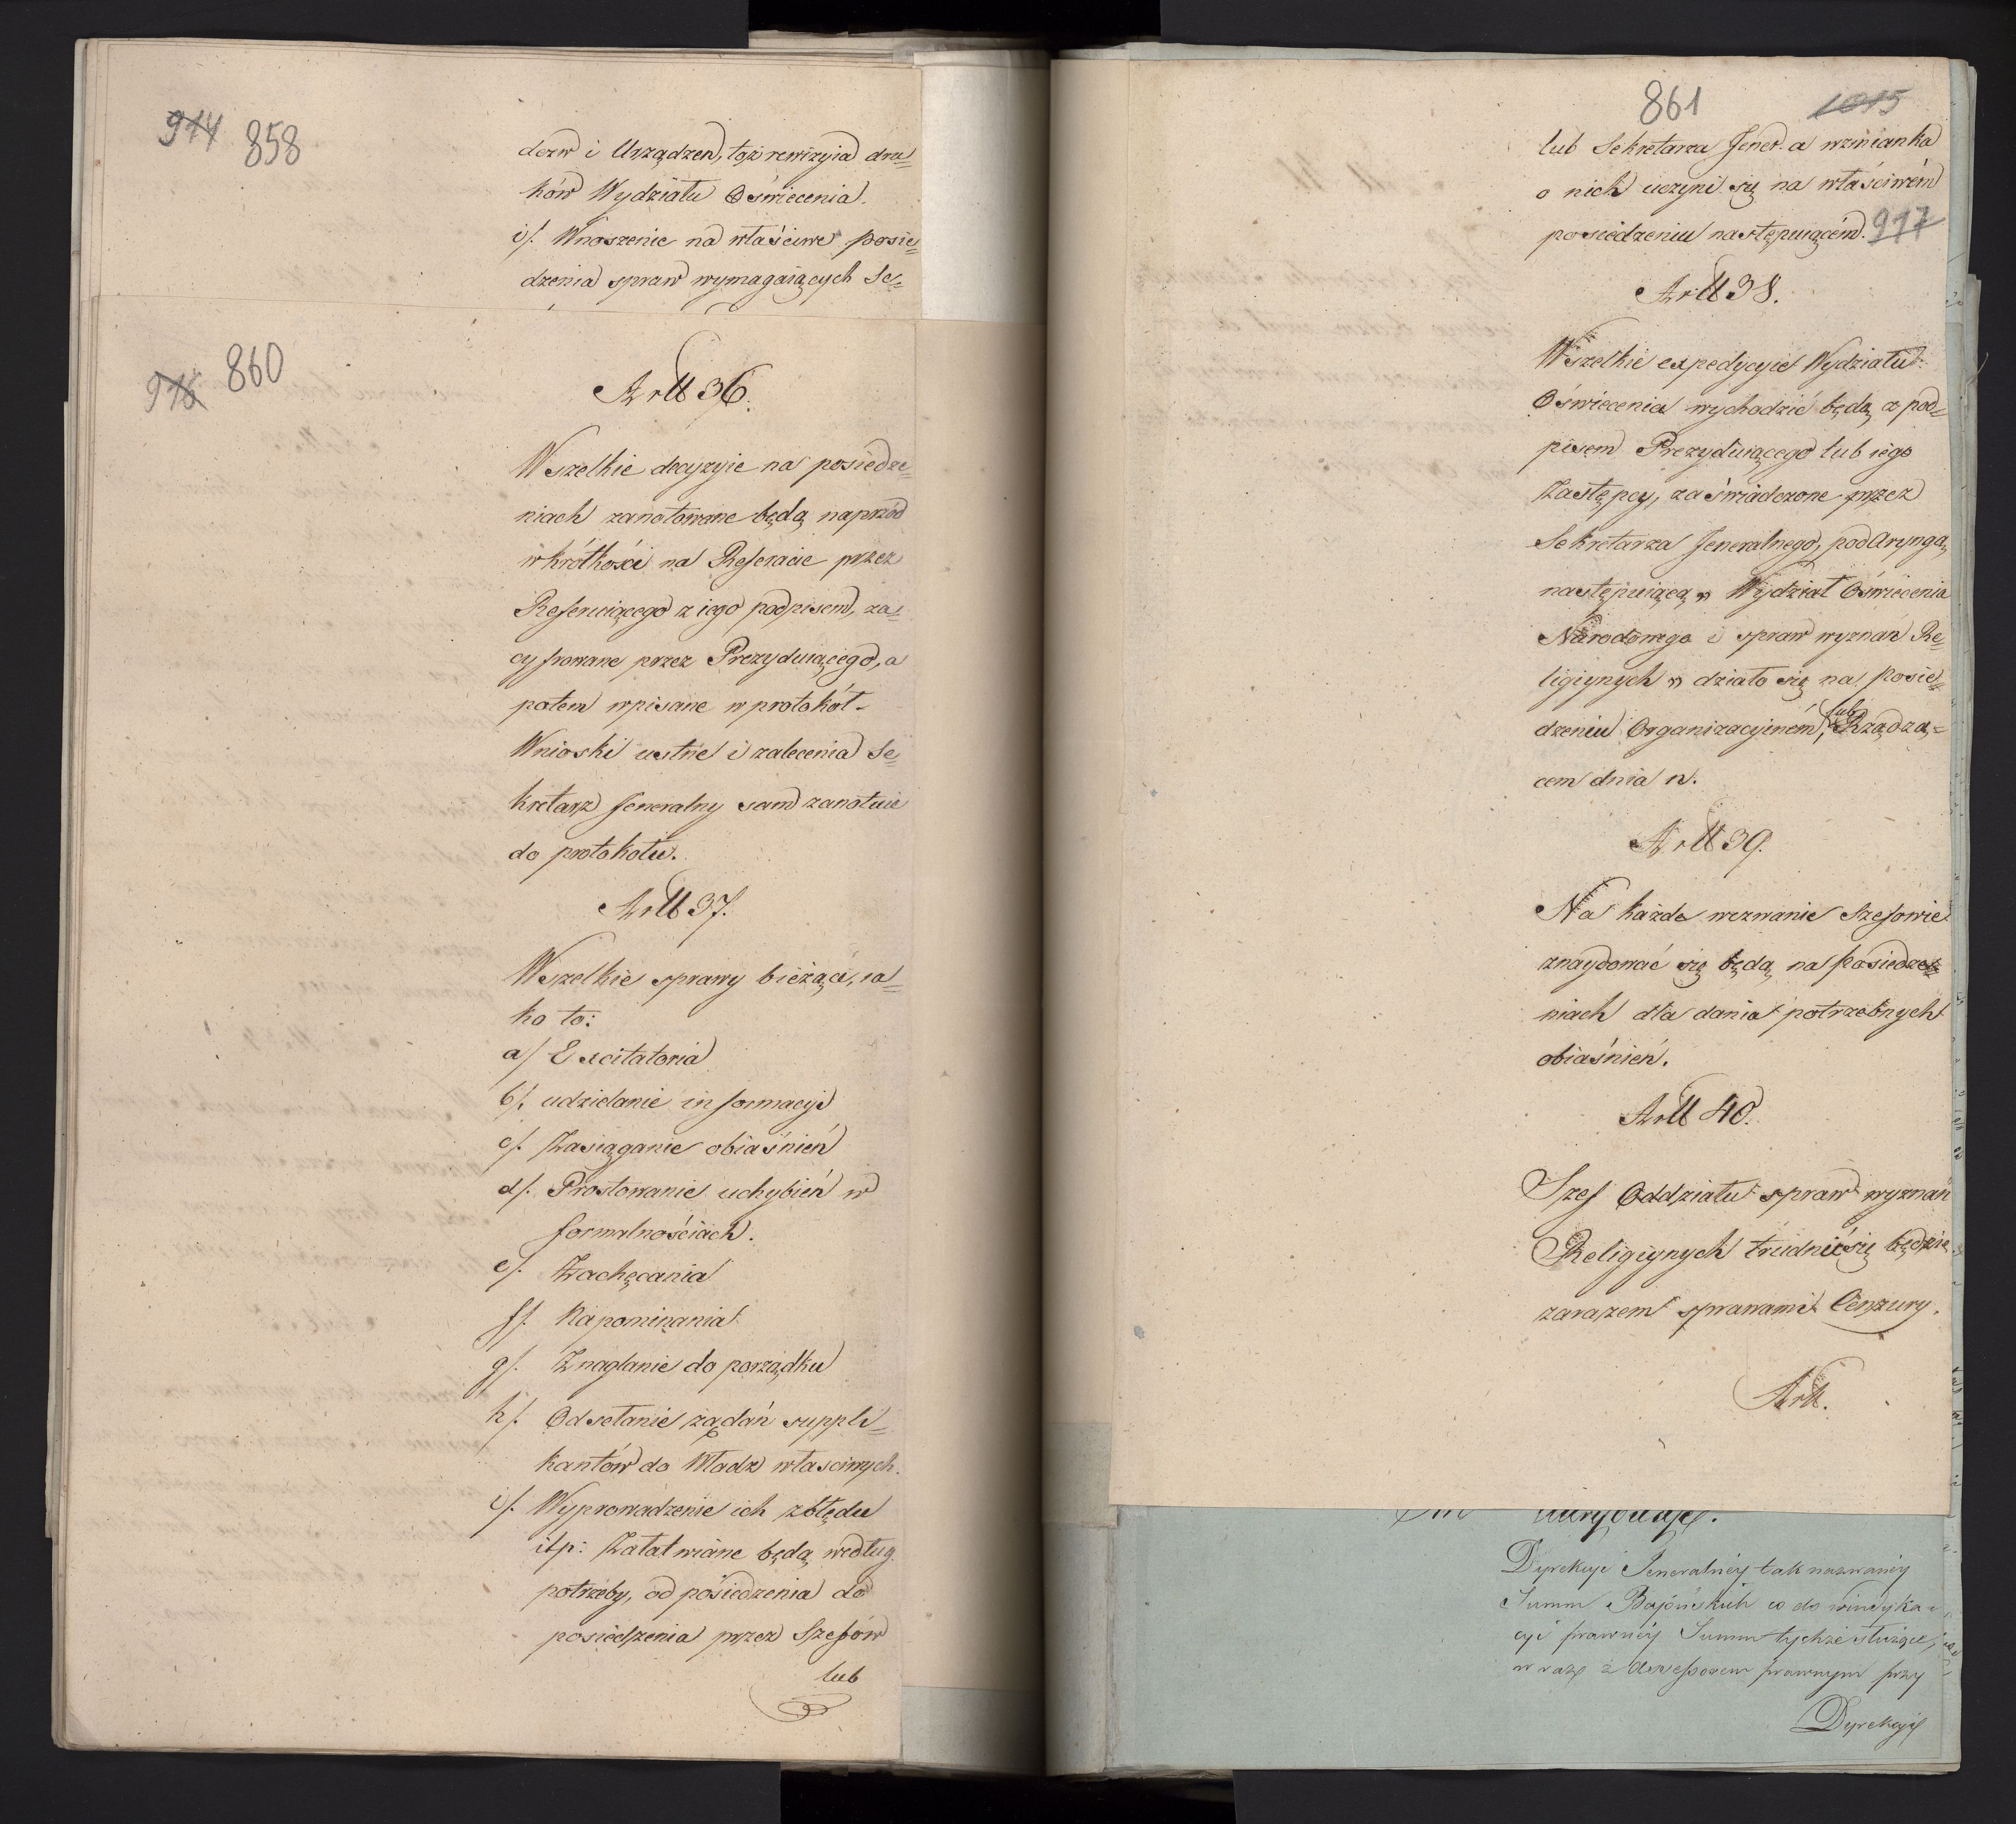 914 858
dozw i Urządzeń, toż rewizyia dru=
ków Wydziału Oświecenia.
i/. Wnoszenie na właściwe posie=
dzenia spraw wymagaiących Se=
916 860
Artt 36.
Wszelkie decyzyie na posiedze=
niach zanotowane będą naprzód
w krótkości na Referacie przez
Referuiącego z iego podpisem, za=
cyfrowane przez Prezyduiącego, a
potem wpisane w protokół -
Wnioski ustne i zalecenia Se=
kretarz Jeneralny sam zanotuie
do protokołu.
Artt 37.
Wszelkie sprawy bieżące, ia=
ko to:
a/ Excitatoria
b/. udzielanie informacyi
c/. Zasiąganie obiaśnień
d/. Prostowanie uchybień w
formalnościach.
e/. Zachęcania
f/. Napominania
g/. Znaglanie do porządku
h/. Odsełanie żądań suppli=
kantów do Władz własciwych.
i/. Wyprowadzenie ich z błędu
itp: Załatwiane będą według
potrzeby, od posiedzenia do
posiedzenia przez Szefów
lub
861 1015
lub Sekretarza Jener. a wzmianka
o nich uczyni się na właściwém
posiedzeniu następuiącém. 917
Artt 38.
Wszelkie expedycyie Wydziału
Oświecenia wychodzić będą z pod=
pisem Prezyduiącego lub iego
Zastępcy, zaświadczone przez
Sekretarza Jeneralnego, pod Aryngą
następuiącą „ Wydział Oświecenia
Narodowego i spraw wyznań Re=
ligiynych „ działo się na posie=
dzeniu Organizacyiném, lub Rządzą=
cem dnia n.
Artt 39.
Na każde wezwanie Szefowie
znaydować się będą na posiedze=
niach dla dania potrzebnych
obiaśnień.
Artt 40.
Szef Oddziału spraw wyznań
Religiynych trudnić się będzie
zarazem sprawami Cenzury.
Artt.
Dyrekcyi Jeneralnéy tak nazwanéy
Summ Bajońskich co do windyka=
cyi prawnéy Summ tychże służące,
wraz z Assessorem prawnym przy
Dyrekcyi